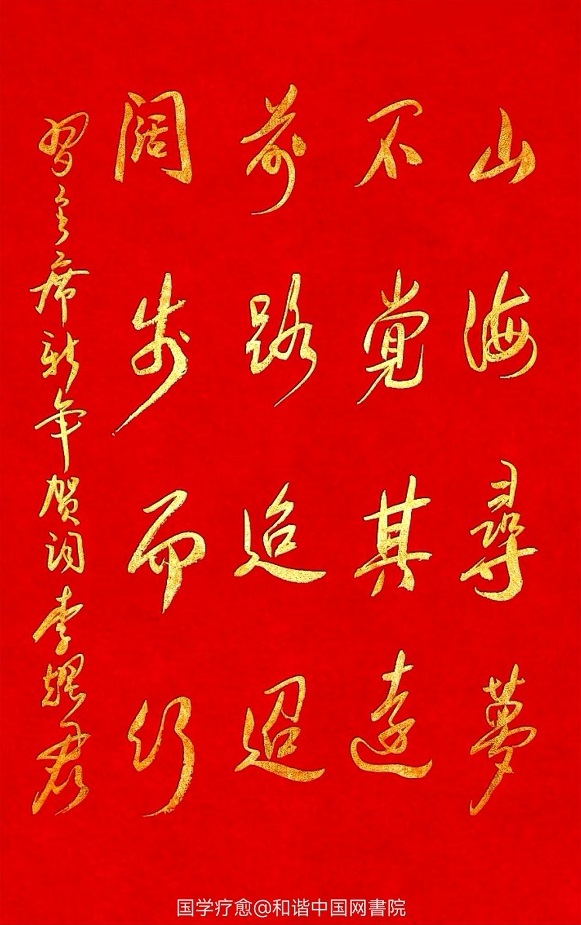 山海尋夢
不觉其遠
前路迢迢
阔步而行
习主席新年贺词李耀君
国学疗愈@和谐中国网書院